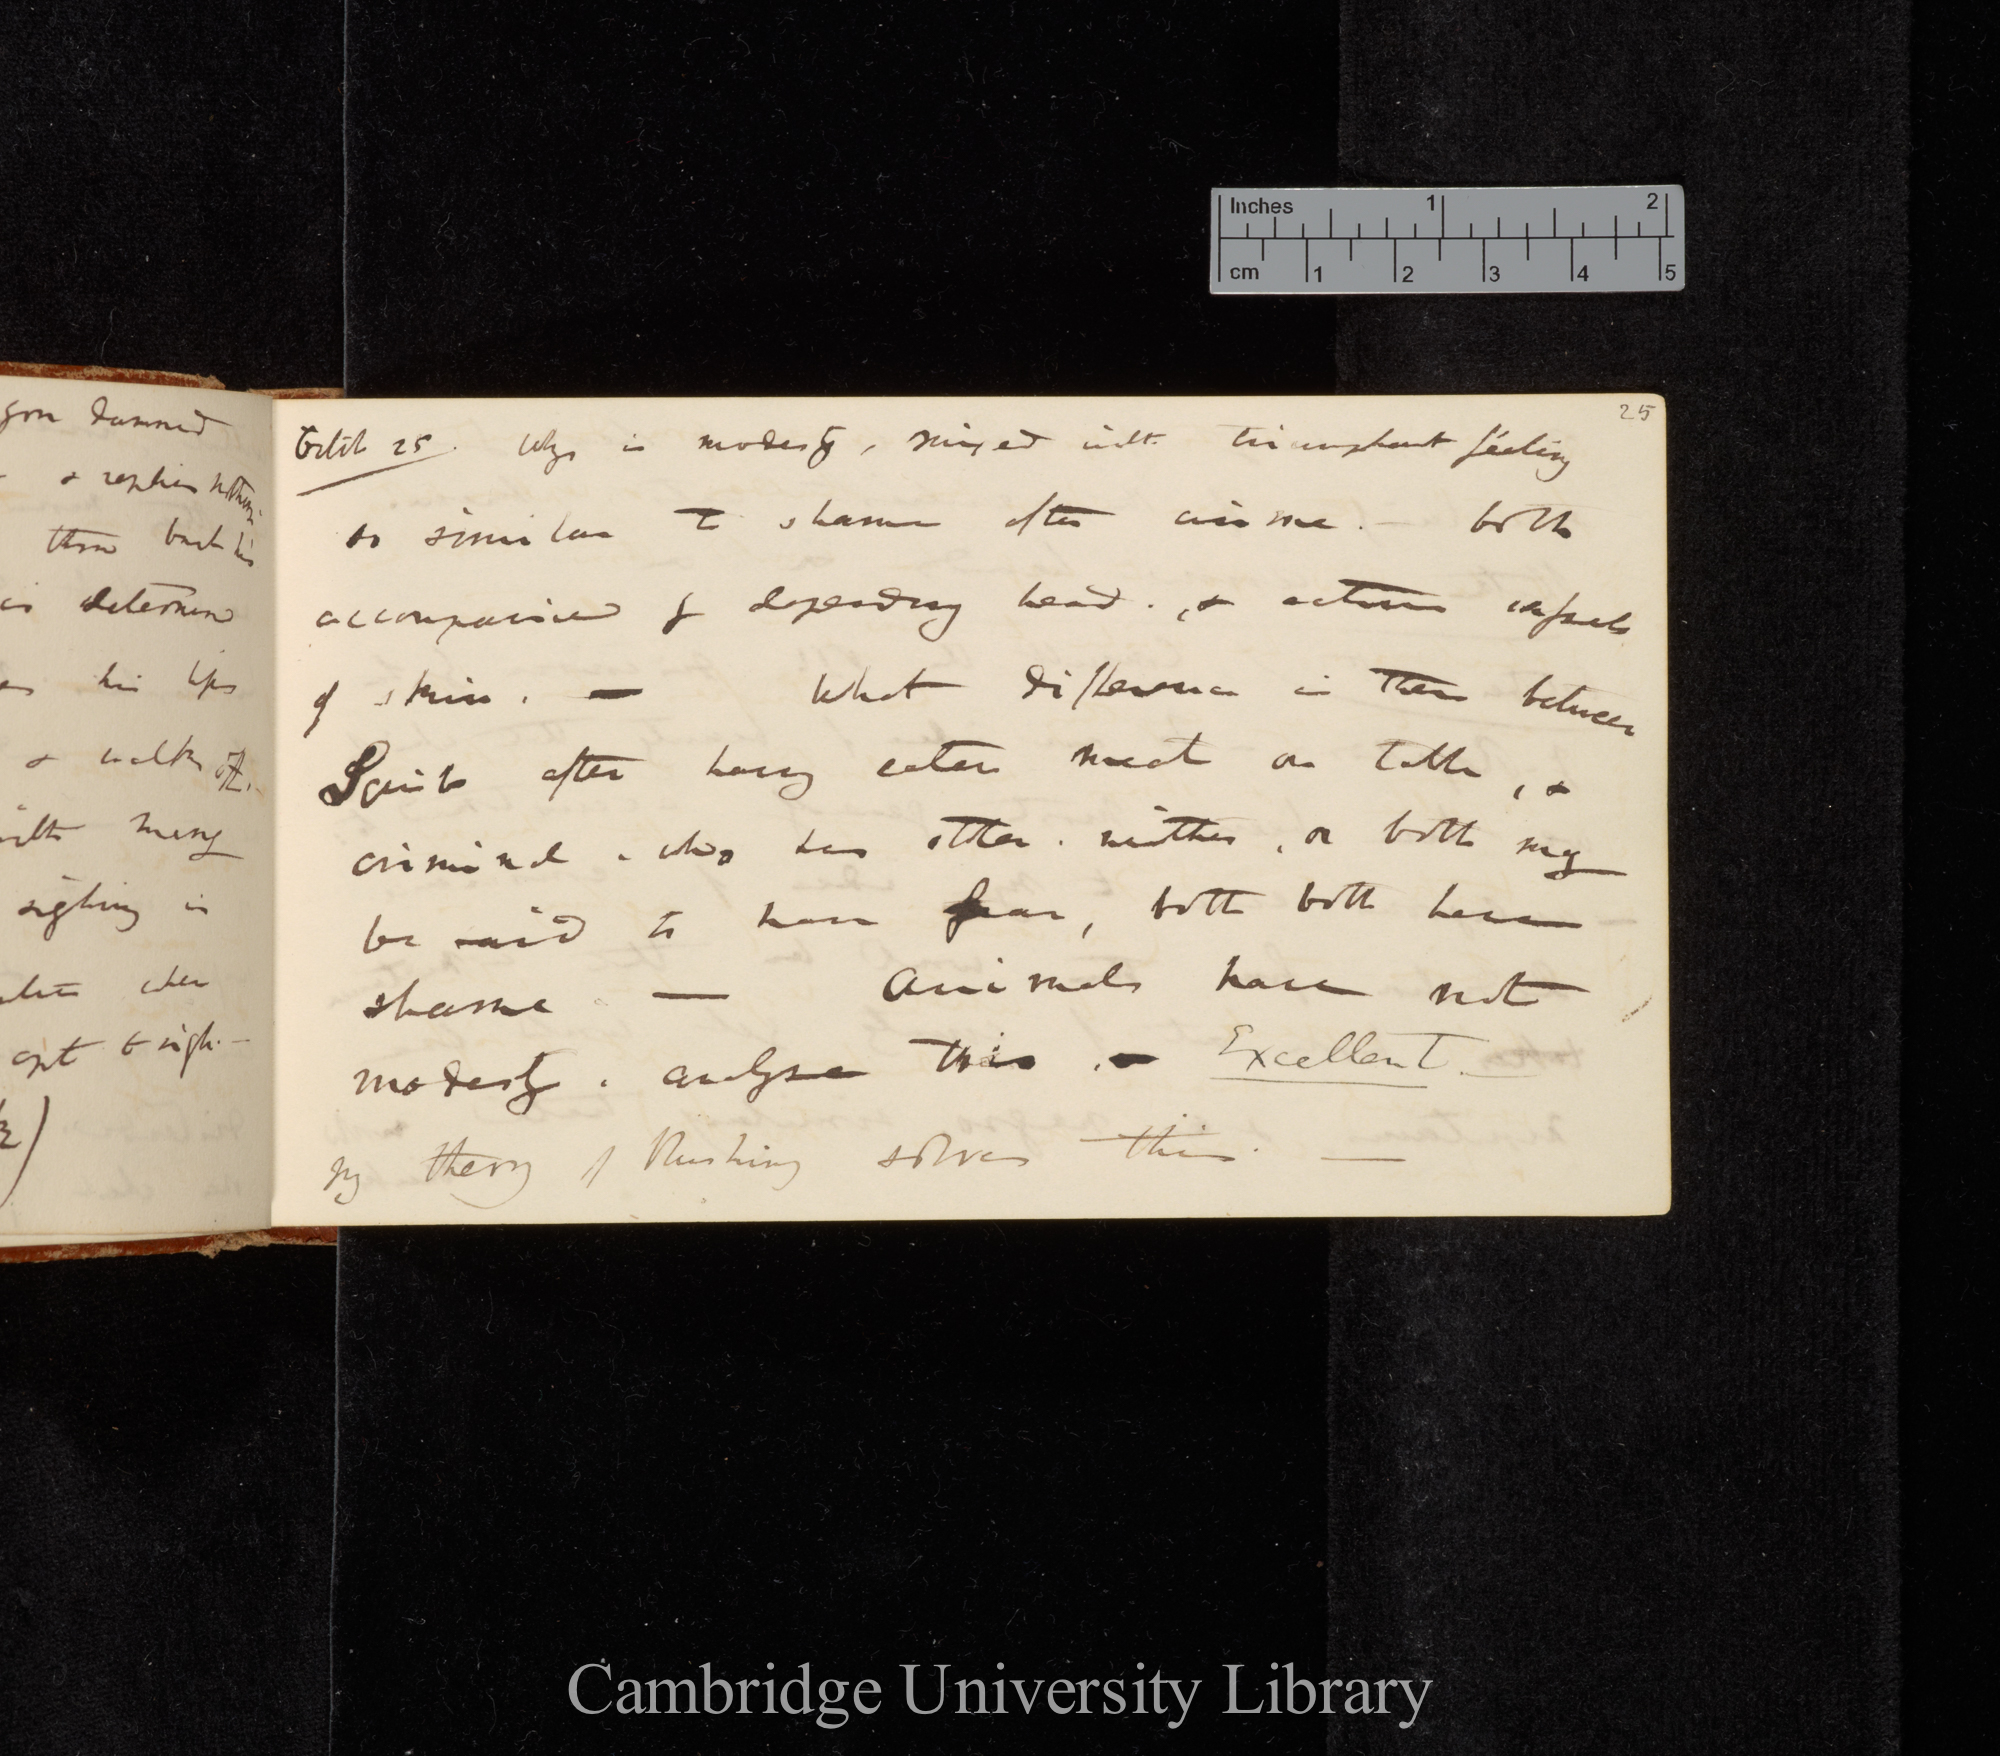 Inches 1 2
cm 1 2 3 4 5
gon damned
& replies nothing
throw back his
is determined
as his lips
& walks off.
with many
sighing in
when
apt to sigh. —
25
Octob 25. Why is modesty, mixed with triumphant feeling
so similar to shame after crime. — both
accompanied by depending head. , &
of skin. — What difference is there between
Squib after having eaten meat on table, &
criminal, who has . neither, or both may
be said to have fear, both both have
shame — Animals have not
modesty. analyse this. — Excellent. —
My theory of Blushing solves this. —
Cambridge University Library